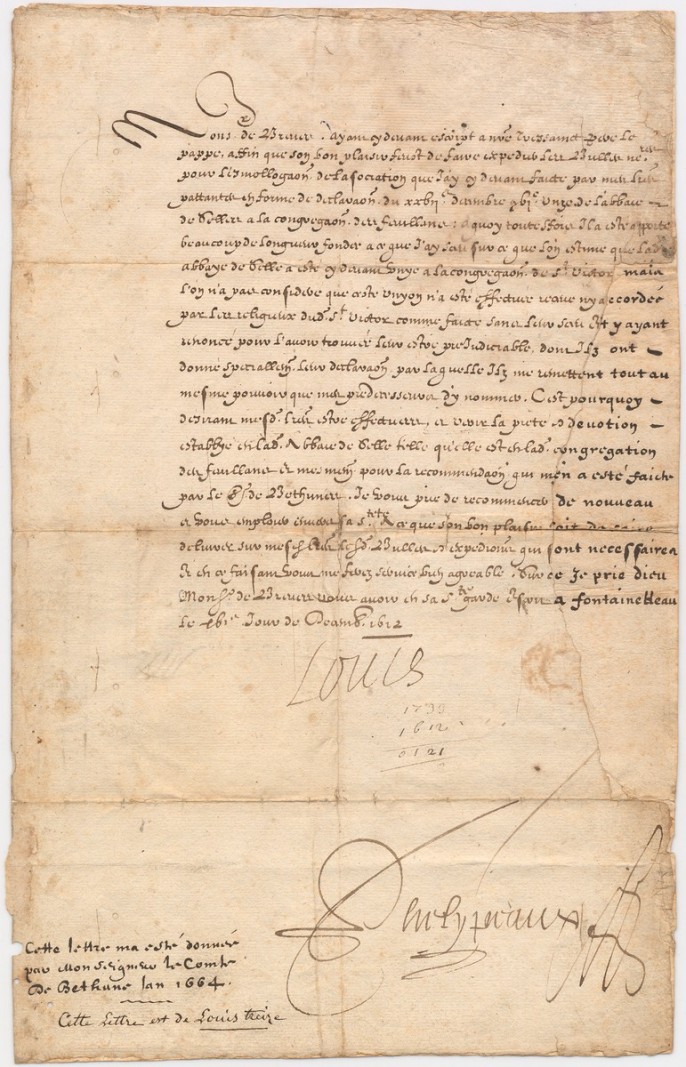 Mons. de Breves. J'ayant cy devant escript a nre tressainct pere le
pappe, affin que son bon plaisir feust de faire expedier les Bulles
pour l'esmollogaōn. de l'asociation que J'ay cy devant faicte par mes lres
pattantes en forme de declaraōn. du xxbijᵉ. decembre vjᶜ. unze de l'abbaie
de Selles a la congregaōn. des feuillans: a quoy touttesfois Il a esté apporté
beaucoup de longueur fondée a ce que J'ay sceu sur ce que l'on estime que lad.
abbaye de Selle a esté cy devant unye a la congregaōn. de st. Victor mais
l'on n'a pas considéré que ceste unyon n'a esté effectuée receue ny accordée
par les religieux dud. st. Victor comme faicte sans leur sceu Et y ayant
renoncé pour l'avoir trouvée leur estre prejudiciable, dont Ilz ont
donné speciallemt. leur declaraōn. par laquelle Ilz me remettent tout au
mesme pouvoir que mes predecesseurs d'y nommer. C'est pourquoy
desirant mesd. lres estre effectuees, et veoir la pieté et devotion
establye en lad. Abbaie de Selle telle qu'elle est en lad. congregation
des feuillans et mesmemt. pour la recommendaōn qui m'en a esté faicte
par le Sr. de Bethunes. Je vous prie de recommencer de nouveau
et vous emploier envers sa Steté. a ce que son bon plaisir soit de faire
delivrer sur mesd. lres lesd. Bulles et expeditions qui sont necessaires
Et en ce faisant vous me ferez service bien agreable. Sur ce Je prie dieu
Monsr. de Breves vous avoir en sa ste. garde Escrit a fontainebleau
le jour de Decemb. 1612
Louis
1733
1612
0121
Phelypeaux
Cette lettre ma esté donnée
par Monseigneur le Comte
de Bethune lan 1664.
Cette Lettre est de Louis treize